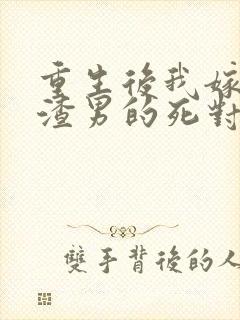 重生後我嫁
渣男的死對
雙手背後的人